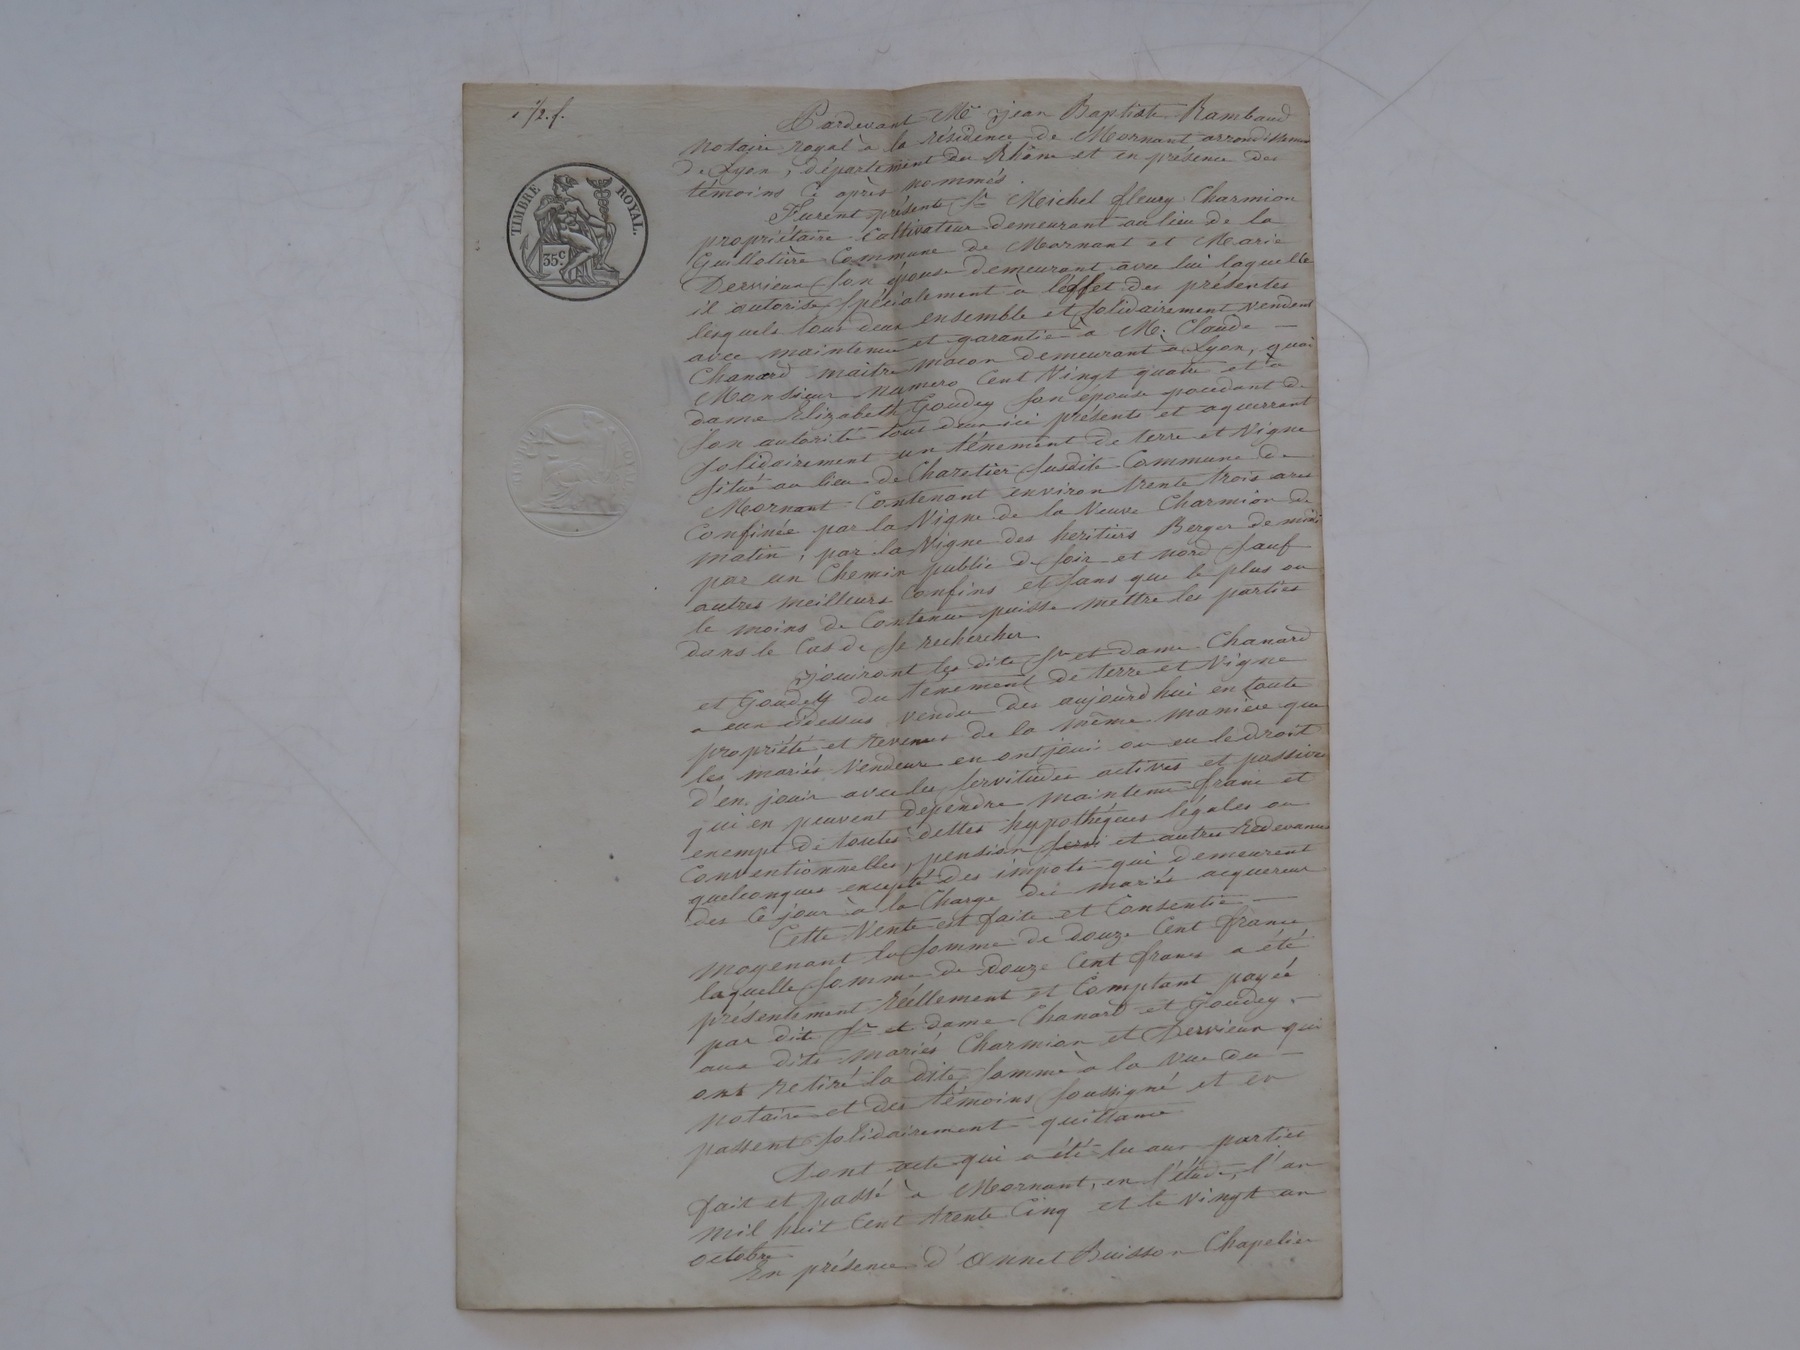 1 1/2. f.
TIMBRE ROYAL.
35 c.
Pardevant Me jean Baptiste Rambaud
notaire royal à la résidence de Mornant arrondissement
de Lyon, département du Rhône et en présence des
témoins ci après nommés.
Furent présent Sr Michel fleury Charmion
propriétaire Cultivateur demeurant au lieu de la
Guillotière Commune de Mornant et Marie
Dervieux son épouse demeurant avec lui laquelle
il autorise Spécialement à l'effet des présentes
lesquels tous deux ensemble et solidairement vendent
avec maintenue et garantie à M. Claude —
Chanard maitre macon demeurant à Lyon, quai
Monsieur numero Cent Vingt quatre et à
dame Elizabeth Goudey son épouse procedant de
son autorité tout deux ici présents et aquerrant
solidairement un tènement de terre et Vigne
situé au lieu de Charetier susdite Commune de
Mornant Contenant environ trente trois ares
Confinée par la Vigne de la Veuve Charmion de
matin; par la Vigne des heritiers Berger de midi
par un Chemin public de soir et nord sauf
autres meilleurs Confins et sans que le plus ou
le moins de Contenue puisse mettre les parties
dans le Cas de se rechercher
jouiront les dits Sr et dame Chanard
et Goudey du tènement de terre et Vigne
a eux cidessus vendu des aujourd'hui en toute
propriété et revenus de la même manière que
les mariés Vendeurs en ont joui ou eu le droit
d'en jouir avec les servitudes actives et passives
qui en peuvent dépendre maintenu franc et
exempt de toutes dettes hypothéques légales ou
Conventionnelles, pension servi et autres redevances
quelconques excepté des impots qui demeurent
des ce jour à la Charge des mariés acquereur
Cette Vente est faite et Consentie —
moyenant la somme de douze Cent francs
laquelle somme de douze Cent francs a été
présentement réellement et Comptant payée
par dit Sr et dame Chanard et Goudey. —
aux dits mariés Charmion et Dervieux qui
ont retiré la dite somme à la vue du —
notaire et des témoins soussigné et en
passent solidairement quittance
Dont acte qui a été lu aux parties
fait et passé à Mornant, en l'étude, l'an
mil huit Cent trente Cinq et le vingt un
octobre
En présence d'Annet Buisson Chapelier